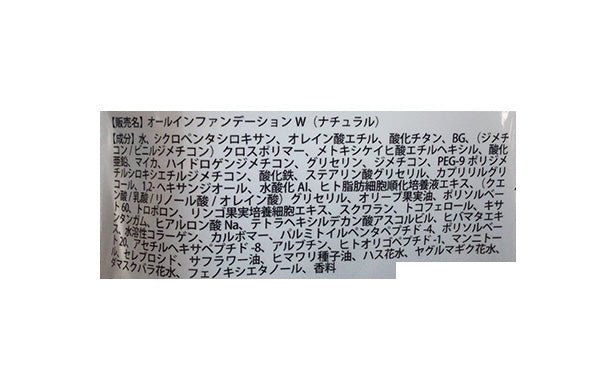 【販売名】オールインファンデーション W（ナチュラル）
【成分】水、シクロペンタシロキサン、オレイン酸エチル、酸化チタン、BG、（ジメチ
コン/ビニルジメチコン）クロスポリマー、メトキシケイヒ酸エチルヘキシル、酸化
亜鉛、マイカ、ハイドロゲンジメチコン、グリセリン、ジメチコン、PEG-9 ポリジメ
チルシロキシエチルジメチコン、酸化鉄、ステアリン酸グリセリル、カプリリルグリ
コール、1,2-ヘキサンジオール、水酸化 Al、ヒト脂肪細胞順化培養液エキス、（クエ
ン酸/乳酸/リノール酸/オレイン酸）グリセリル、オリーブ果実油、ポリソルベー
ト60、トロポロン、リンゴ果実培養細胞エキス、スクワラン、トコフェロール、キサ
ンタンガム、ヒアルロン酸 Na、テトラヘキシルデカン酸アスコルビル、ヒバマタエキ
ス、水溶性コラーゲン、カルボマー、パルミトイルペンタペプチド-4、ポリソルベー
ト20、アセチルヘキサペプチド-8、アルブチン、ヒトオリゴペプチド-1、マンニトー
ル、セレブロシド、サフラワー油、ヒマワリ種子油、ハス花水、ヤグルマギク花水、
ダマスクバラ花水、フェノキシエタノール、香料